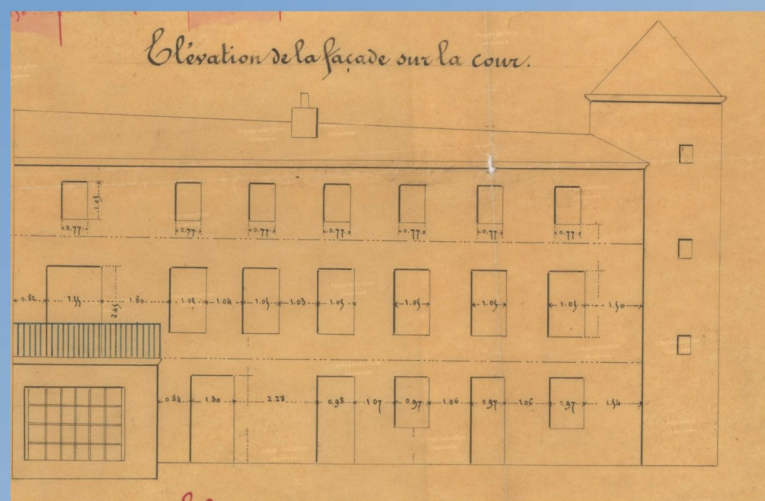 Elévation de la façade sur la cour.
1.05
0.77 0.77 0.77 0.77 0.77 0.77 0.77
0.82 1.55 1.80 1.05 1.04 1.05 1.03 1.05 1.05 1.05 1.05 1.50
2.45
0.64 1.30 2.28 0.98 1.07 0.97 1.06 0.97 1.06 0.97 1.54